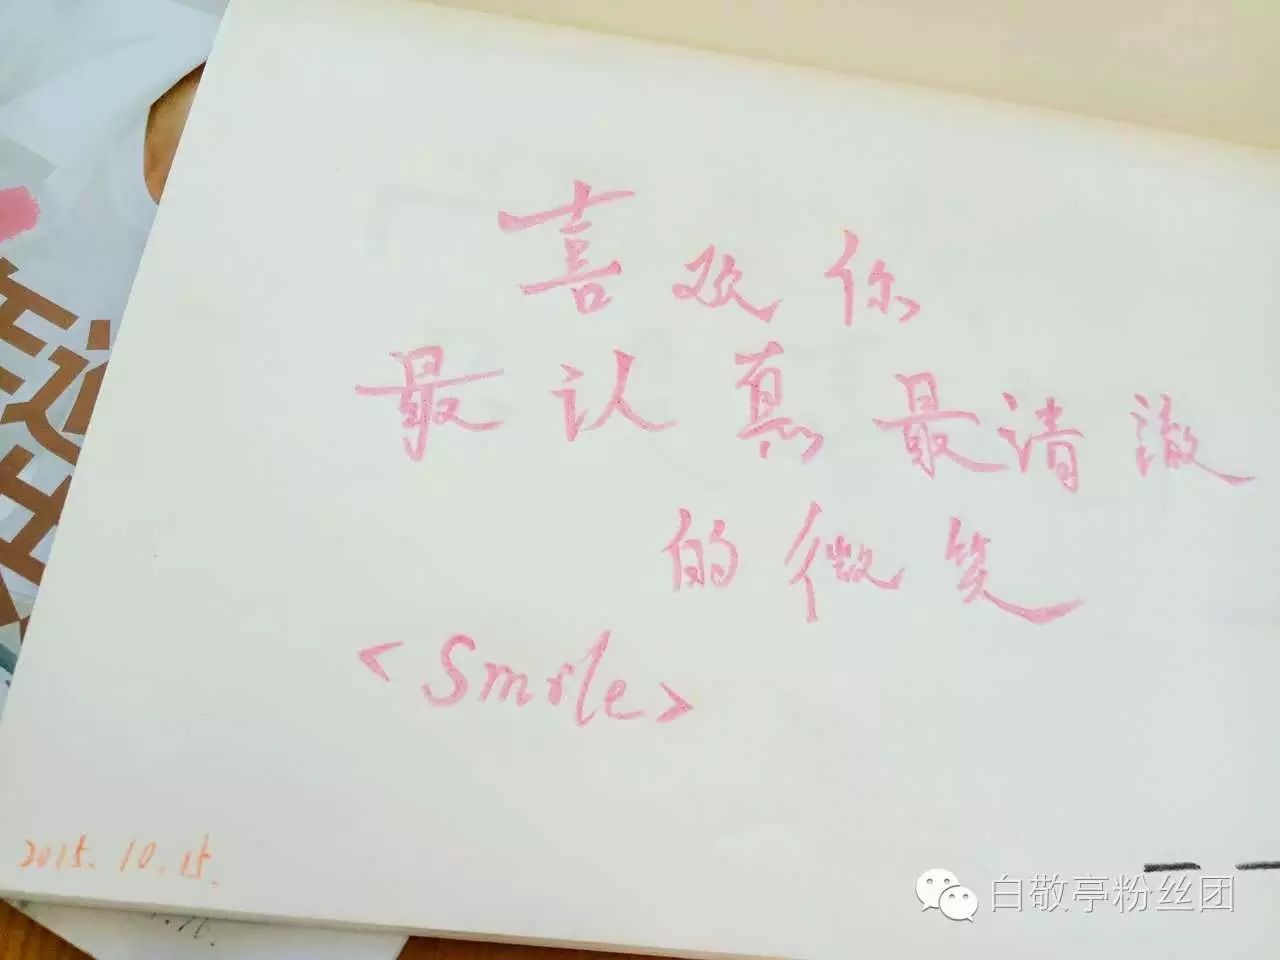 喜欢你
最认真最清澈
的微笑
<Smile>
2015.10.15.
白敬亭粉丝团